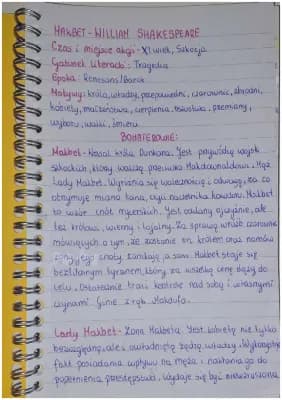 MAKBET - WILLIAM SHAKESPEARE
Czas i miejsce akcji - XI wiek, Szkocja
Gatunek literacki: Tragedia
Epoka: Renesans/Barok
Motywy: króla, władzy, przepowiedni, czarownic, zbrodni,
kobiety, małżeństwa, cierpienia, bóstwa, przemiany,
wyboru, walki, śmierci
BOHATEROWIE:
Makbet - Wasal króla Dunkana. Jest przywódcą wojsk
szkockich, który walczy przeciwko Makdonwaldowi. Mąż
Lady Makbet. Wyróżnia się walecznością i odwagą, za co
otrzymuje miano tana, czyli naczelnika hrabstwa. Makbet
to wzór cnót rycerskich. Jest oddany ojczyźnie, ale
też królowi, wierny i lojalny. Za sprawą wróżb czarownic
mówiących o tym, że zostanie on królem oraz namów
żony, jego cnoty zanikają, a sam Makbet staje się
bezlitosnym tyranem, który za wszelką cenę dąży do
celu. Ostatecznie traci kontrolę nad sobą i własnymi
czynami. Ginie z rąk Makdufa.
Lady Makbet - Żona Makbeta. Jest kobietą nie tylko
bezwzględną, ale i owładniętą żądzą władzy. Wykorzystuje
fakt posiadania wpływu na męża i nakłania go do
popełnienia przestępstwa. Wydaje się być niewzruszona